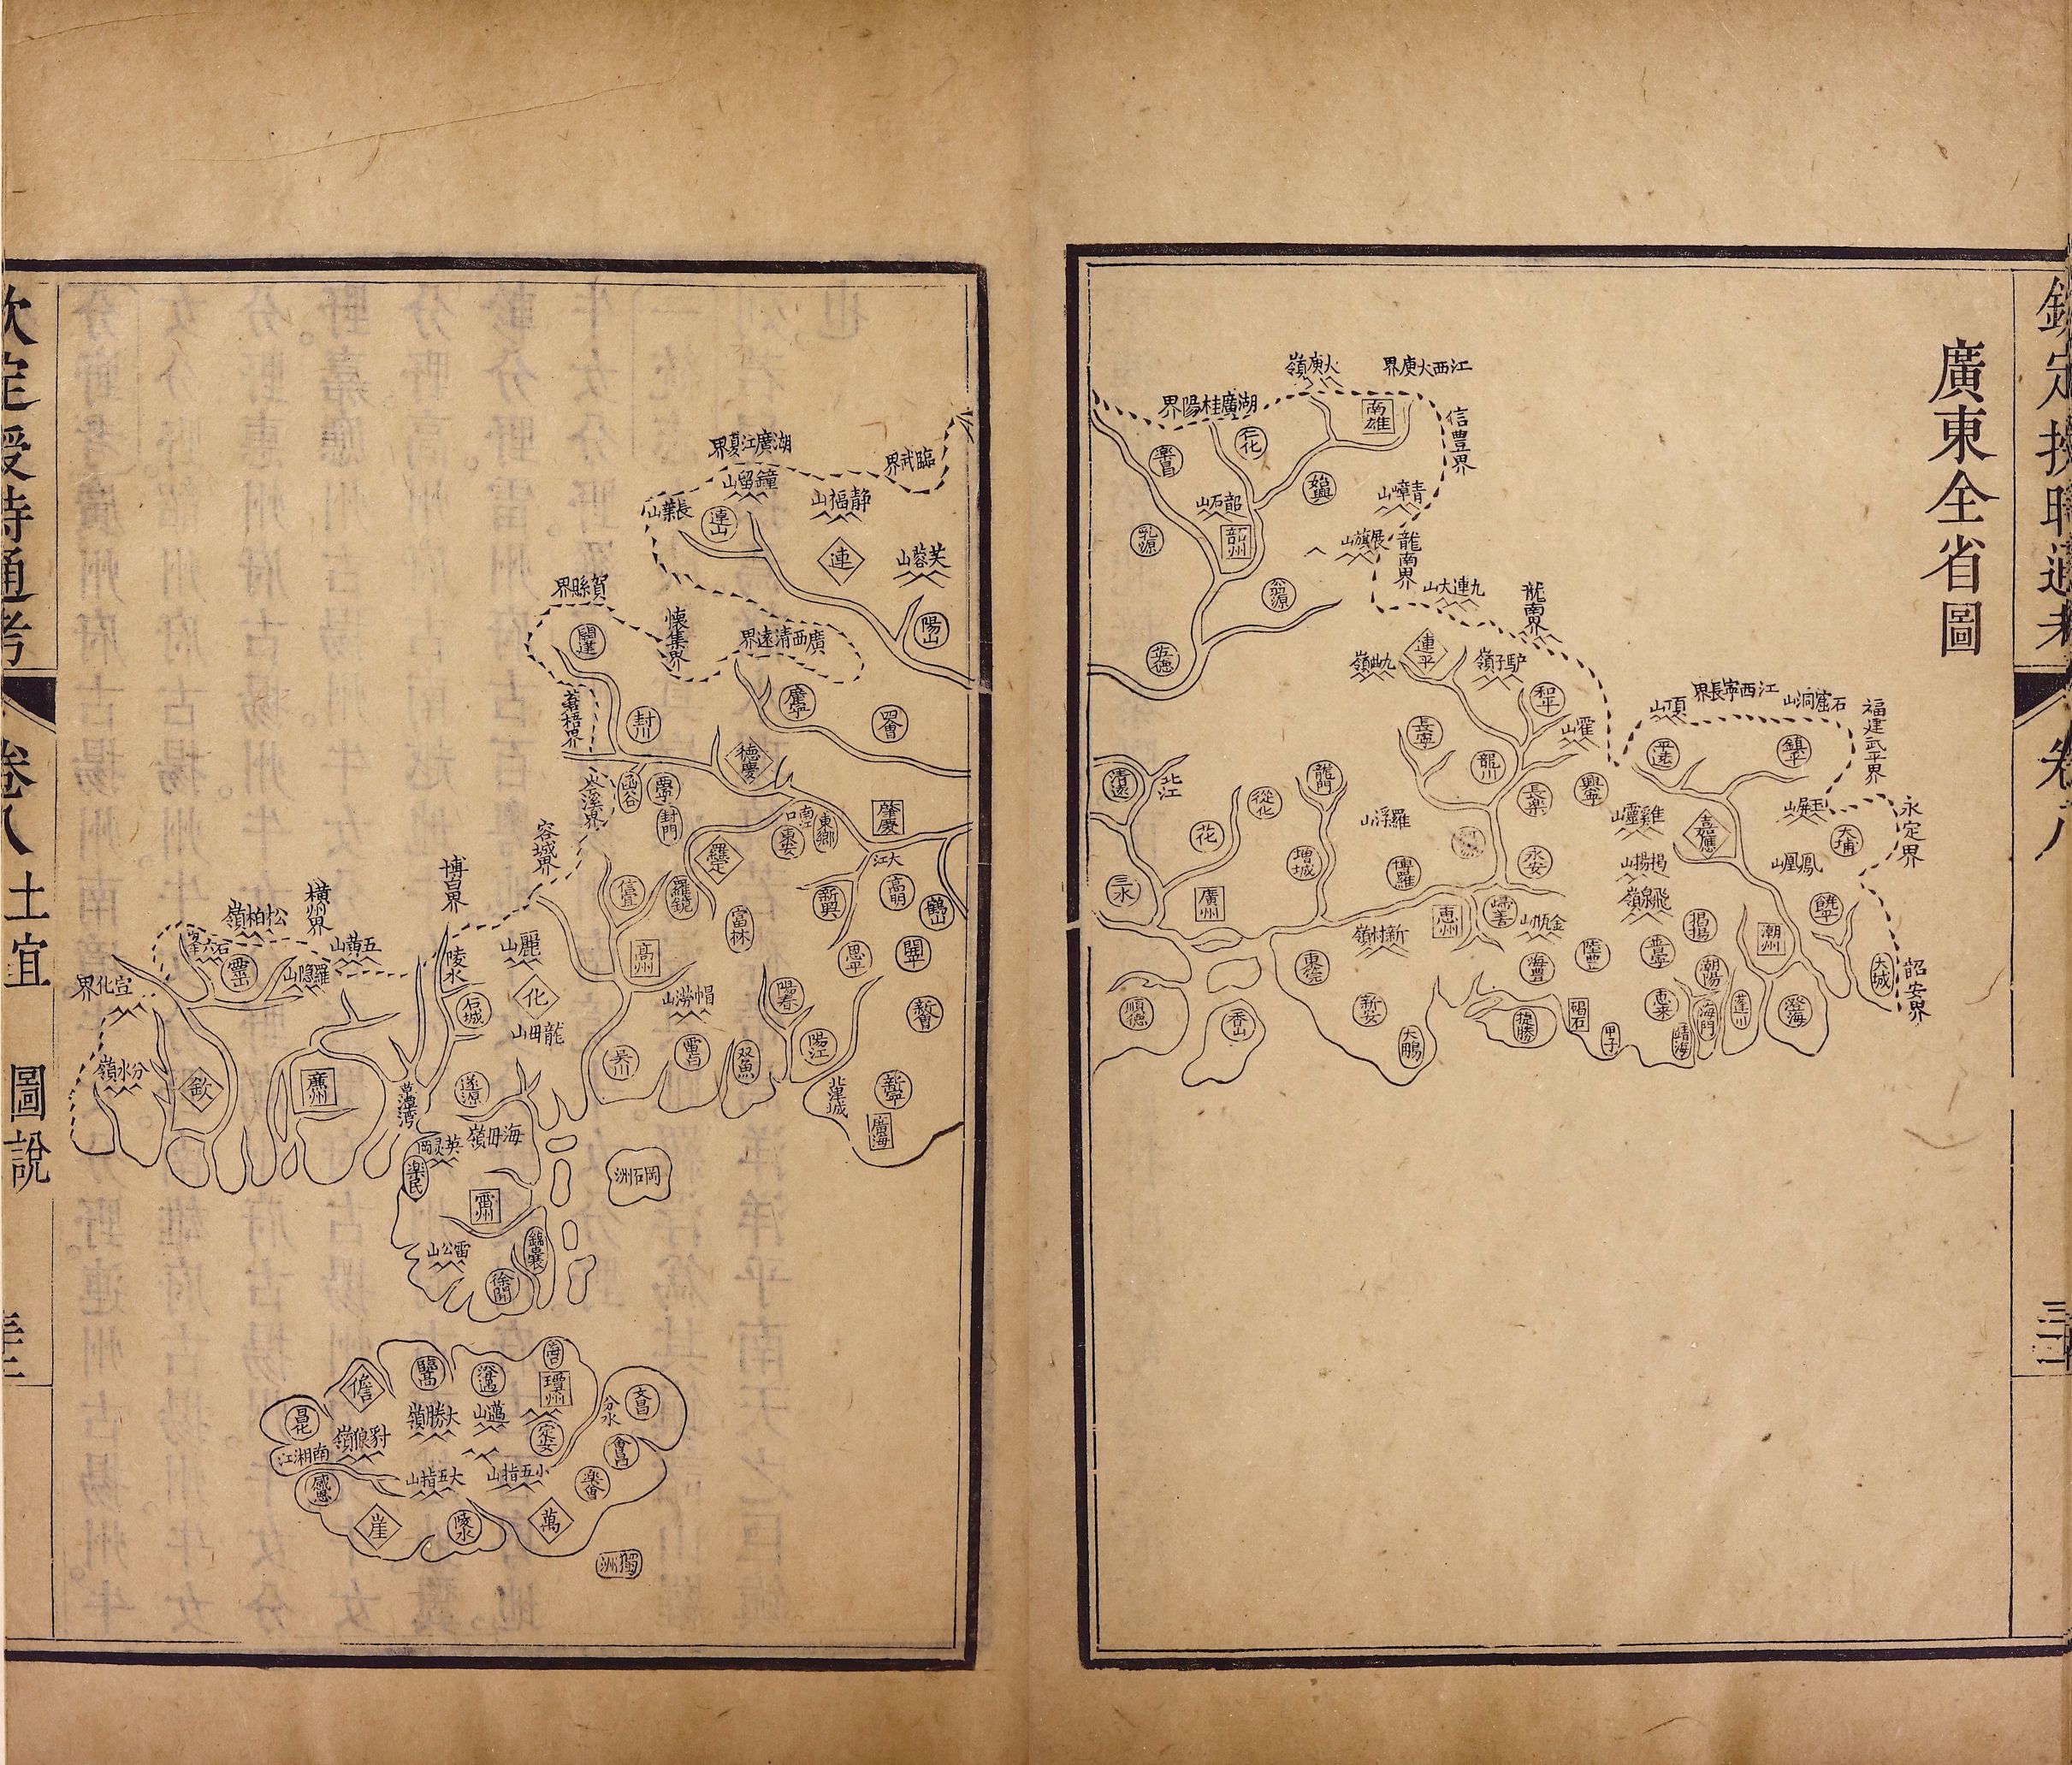 廣東全省圖
江西大庾界
大庾嶺
湖廣桂陽界
信豊界
南雄
仁花
樂昌
始興
青嶂山
韶石山
韶州
乳源
展旗山
龍南界
九連大山
翁源
英德
龍南界
連平
九曲嶺
馿子嶺
和平
霍山
長寧
龍川
江西寧長界
石窟洞山
頂山
平遠
鎮平
福建武平界
永定界
大埔
玉屏山
興寧
長樂
雞靈山
嘉應
鳳凰山
揭揚山
飛泉嶺
饒平
清遠
北江
從化
龍門
羅浮山
花
增城
博羅
永安
三水
廣州
惠州
歸善
金瓶山
新村嶺
揭揚
潮州
陸豊
普寧
海豊
潮陽
大城
詔安界
東莞
順德
香山
新安
大鵬
捷勝
碣石
甲子
惠來
靖海
海門
蓬川
澄海
卷八
土宜
圖說
臨武界
湖廣江夏界
鐘留山
静福山
長葉山
連山
連
芙蓉山
陽山
賀縣界
開建
懷集界
廣西清遠界
蒼梧界
封川
廣寧
四會
德慶
岑溪界
函谷
西寧
封門
肇慶
南江口
東安
東鄉
大江
羅定
容城界
博白界
橫州界
信宜
羅鏡
新興
高明
鶴山
富林
松柏嶺
石六峯
靈山
羅陽山
五黄山
宣化界
陵水
麗山
高州
思平
開平
化
石城
龍田山
帽游山
陽春
新會
分水嶺
欽
廉州
遂源
吳川
電白
双魚
陽江
北津城
新寧
廣海
海毋嶺
英灵岡
樂民
雷州
岡石洲
雷公山
錦囊
徐聞
海口
瓊州
儋
臨高
澄邁
文昌
分水
昌化
大勝嶺
定安
會昌
豺狼嶺
南湘江
大五指山
小五指山
樂會
感恩
崖
陵水
萬
獨洲